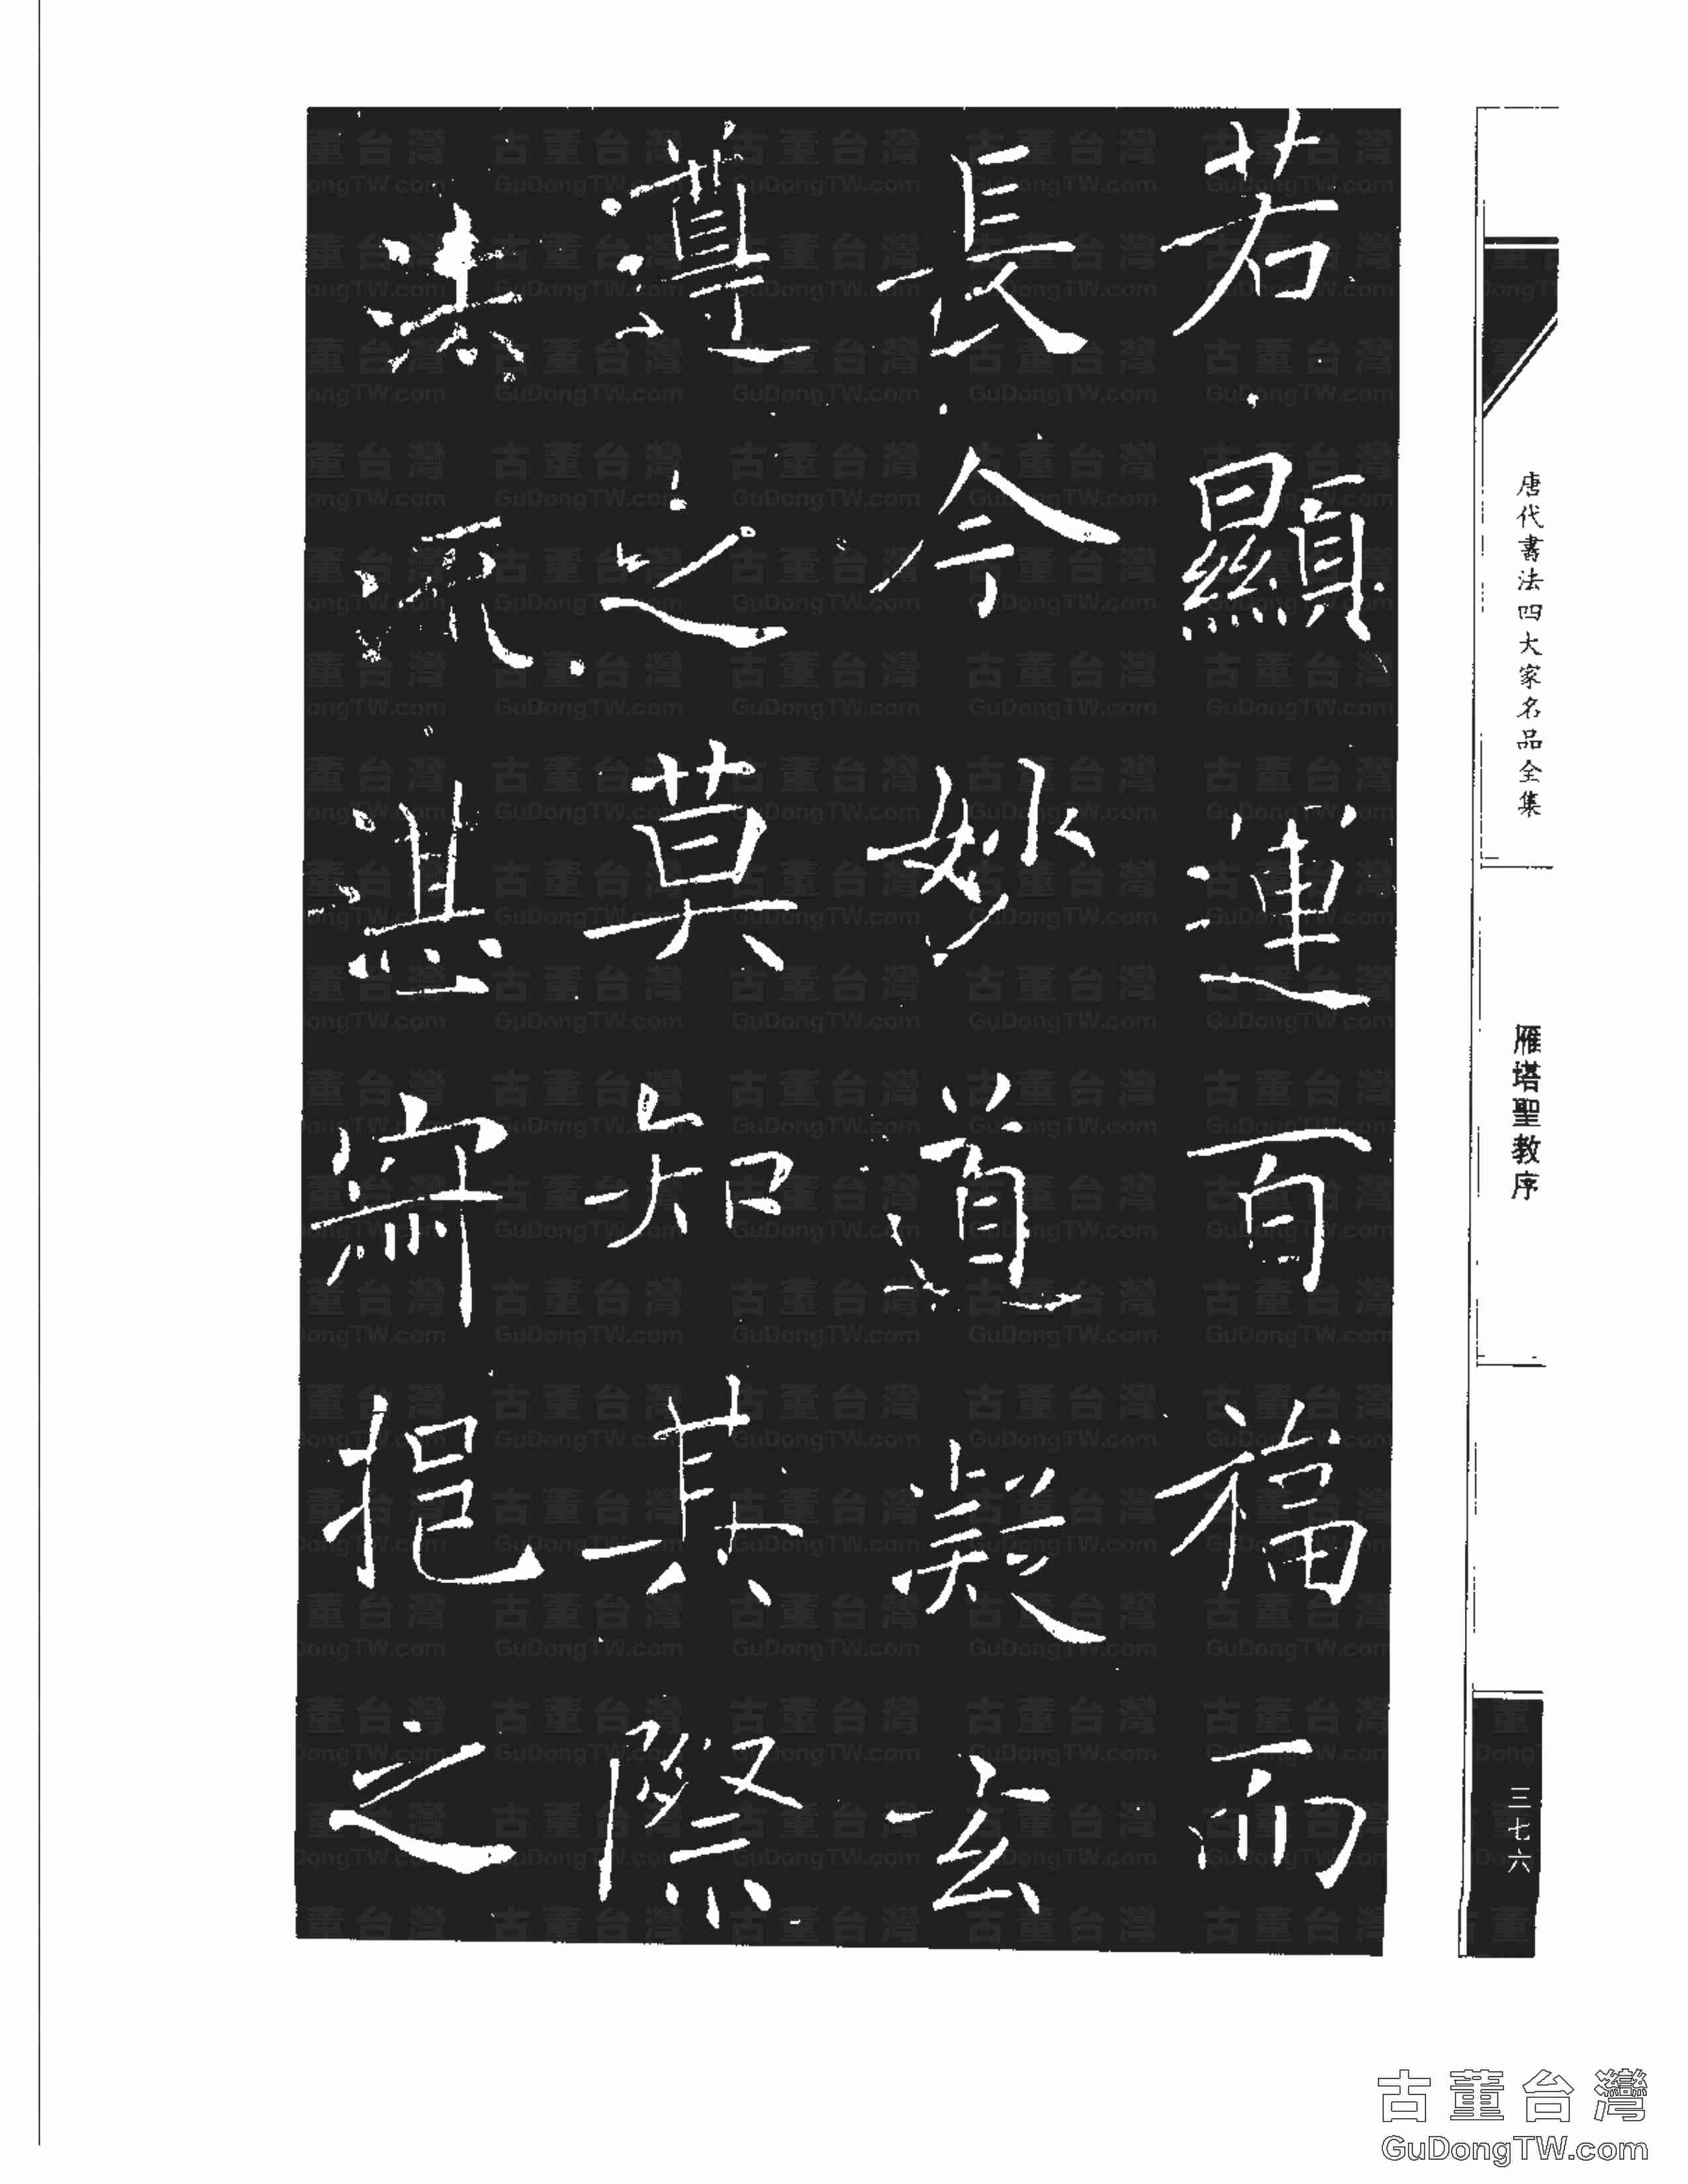 若顯運百福而
長今妙道凝玄
遵之莫知其際
法流湛寂挹之
唐代書法四大家名品全集
雁塔聖教序
三七六
古董台灣
GuDongTW.com